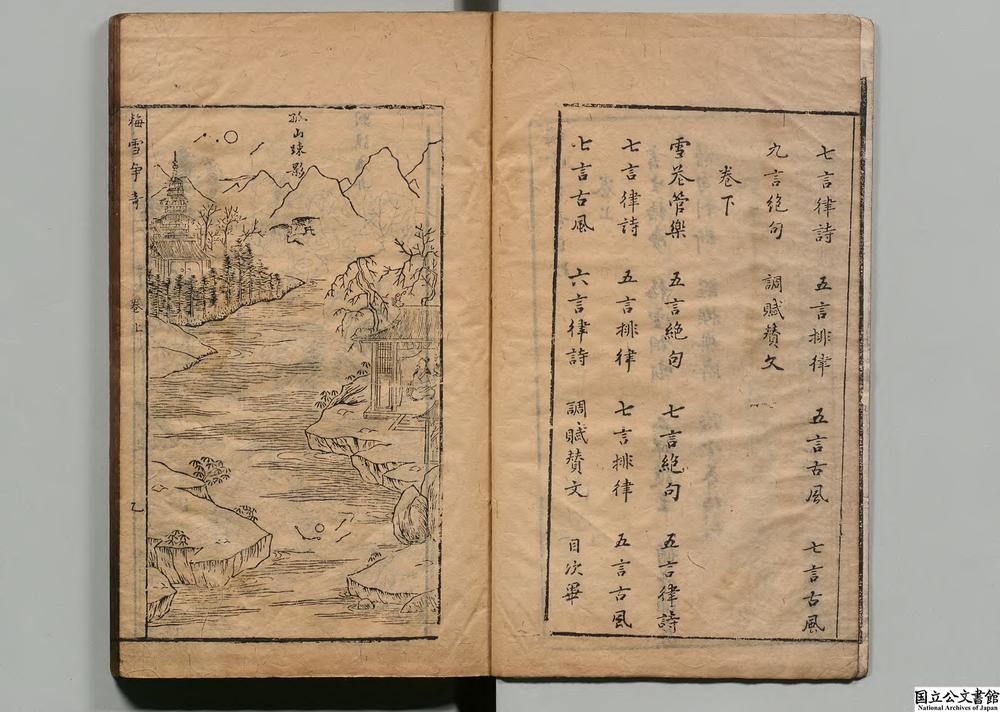 七言律詩 五言排律 五言古風 七言古風
九言絶句 調賦賛文
卷下
雪卷管樂 五言絶句 七言絶句 五言律詩
七言律詩 五言排律 七言排律 五言古風
七言古風 六言律詩 調賦賛文 目次畢
孤山疎影
梅雪争奇 卷上 乙
国立公文書館
National Archives of Japan